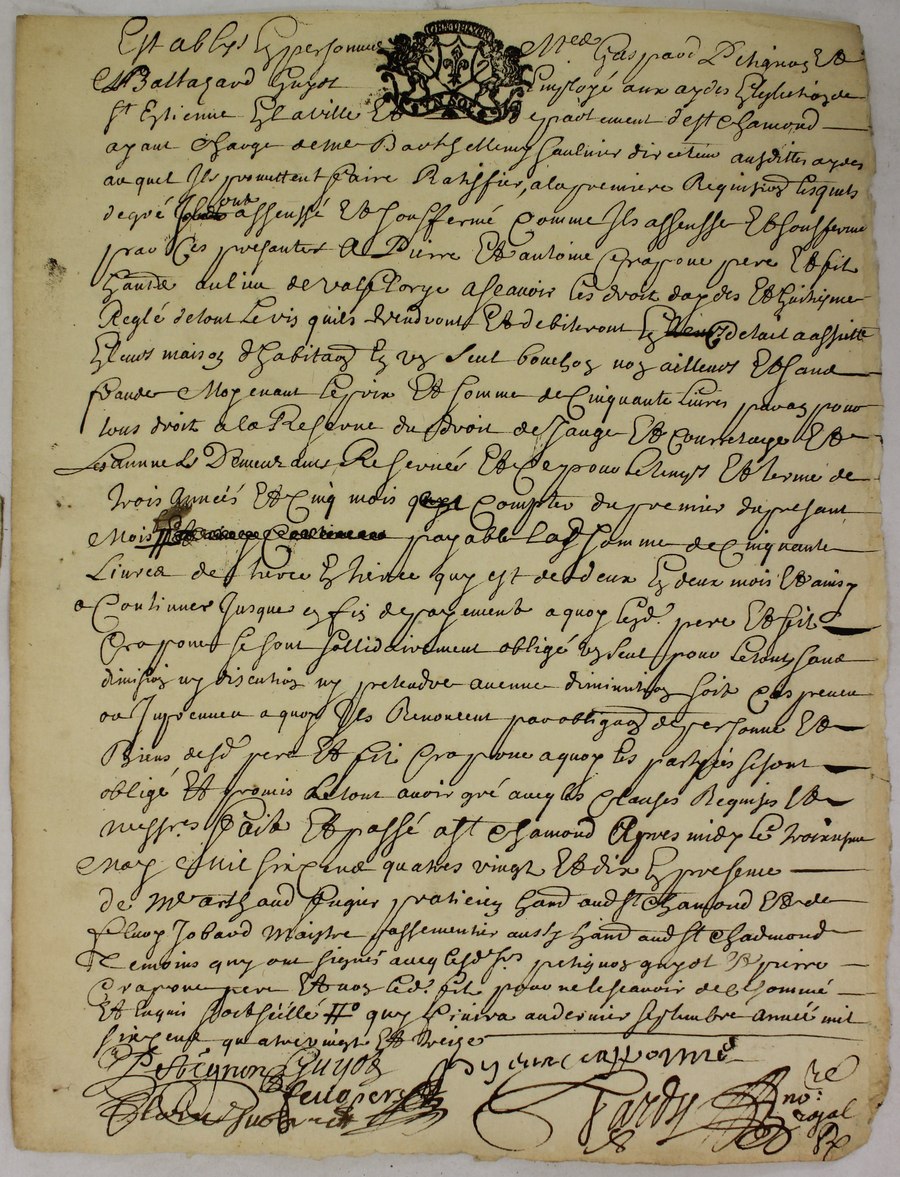 Establys en personnes Mres Gaspard Petignon Et
Baltazard Guyot Employé aux aydes Eslection de
St Estienne En la ville Et departement de st chamond
ayant charge de me Barthellemy Saulnier directeur ausdittes aydes
auquel Ils promettent faire Ratiffier, a la premiere Requisition lesquels
de gré ont assenssé Et soufermé comme Ils assenssse Et souferme
par Ces presantes A Pierre Et antoine Crapone pere Et fil
hantz au lieu de valflorye a scavoir les droit daydes Et huitiesme
Reglé de tout le vin quils vendront Et debiteront En detail a assiette
En leurs maison d'habitaon En un seul bouchon non ailleurs Et sans
fraude Moyenant le prix Et somme de Cinquante Livres par an pour
tous droit a la Reserve du droit de Jauge Et Courretage Et
Les annuels Demeurans Reservées Et Ce pour le temps Et terme de
trois années Et Cinq mois a Compter du premier du presant
Mois payable lad somme de Cinquante
Livres de Terme En terme quy est de deux En deux mois Et ainsy
a Continuer Jusque en fin de payement a quoy lesd. pere Et fil
Crapone se sont sollidairement obligé un seul pour le tout sans
division ny discution ny pretendre aucune diminution soit Cas preveu
ou Inpreveu a quoy Ils Renoncent par obligaon de personne Et
Biens desd pere Et fil Crapone a quoy les parties se sont
obligé Et promis le tout avoir gré avecq les Clauses Requises Et
necessres. Fait Et passé a st chamond Apres midy le troiziesme
May Mil six Cens quatres vingt Et dix En presence
de Me arthaud fugier praticien hant aud st Chamond Et de
fleury Jobard Maistre passementier aussy hant aud st Chadmond
Temoins quy ont signés avecq lesd. srs petignon guyot Et pierre
Crapone pere Et non led. fil pour ne le scavoir de Ce sommé
Et Enquis quy finira au dernier septembre année mil
six cens quatre vingt Et treize
Petignon Guyot pierre crapone
Tardy no.re royal